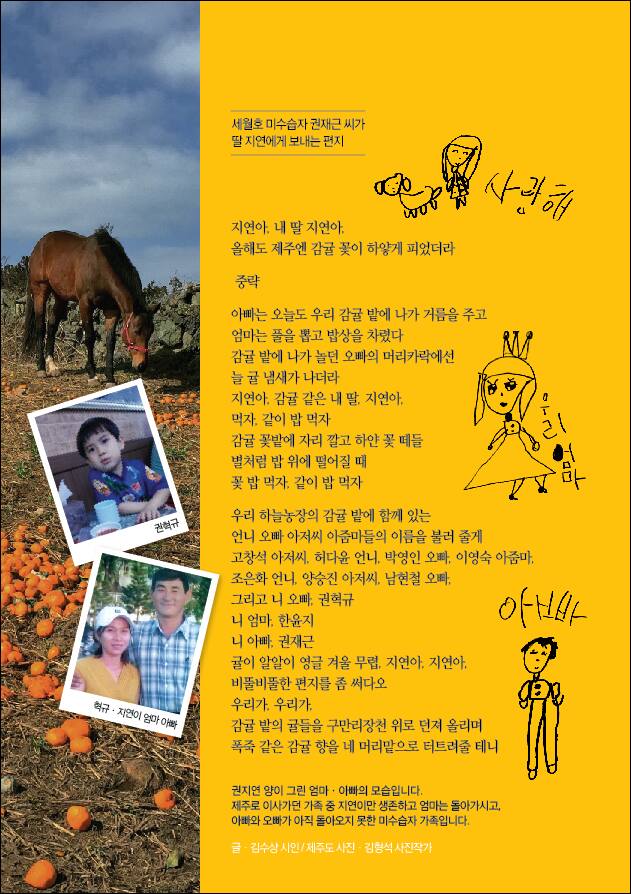 세월호 미수습자 권재근 씨가
딸 지연에게 보내는 편지
사랑해
지연아, 내 딸 지연아,
올해도 제주엔 감귤 꽃이 하얗게 피었더라
중략
아빠는 오늘도 우리 감귤 밭에 나가 거름을 주고
엄마는 풀을 뽑고 밥상을 차렸다
감귤 밭에 나가 놀던 오빠의 머리카락에선
늘 귤 냄새가 나더라
지연아, 감귤 같은 내 딸, 지연아,
먹자, 같이 밥 먹자
감귤 꽃밭에 자리 깔고 하얀 꽃 떼들
별처럼 밥 위에 떨어질 때
꽃 밥 먹자, 같이 밥 먹자
우리 엄마
우리 하늘농장의 감귤 밭에 함께 있는
언니 오빠 아저씨 아줌마들의 이름을 불러 줄게
고창석 아저씨, 허다윤 언니, 박영인 오빠, 이영숙 아줌마,
조은화 언니, 양승진 아저씨, 남현철 오빠,
그리고 니 오빠, 권혁규
니 엄마, 한윤지
니 아빠, 권재근
귤이 알알이 영글 겨울 무렵, 지연아, 지연아,
비뚤비뚤한 편지를 좀 써다오
우리가, 우리가,
감귤 밭의 귤들을 구만리장천 위로 던져 올리며
폭죽 같은 감귤 향을 네 머리맡으로 터트려줄 테니
권혁규
혁규 · 지연이 엄마 아빠
권지연 양이 그린 엄마 · 아빠의 모습입니다.
제주로 이사가던 가족 중 지연이만 생존하고 엄마는 돌아가시고,
아빠와 오빠가 아직 돌아오지 못한 미수습자 가족입니다.
글 · 김수상 시인 / 제주도 사진 · 김형석 사진작가